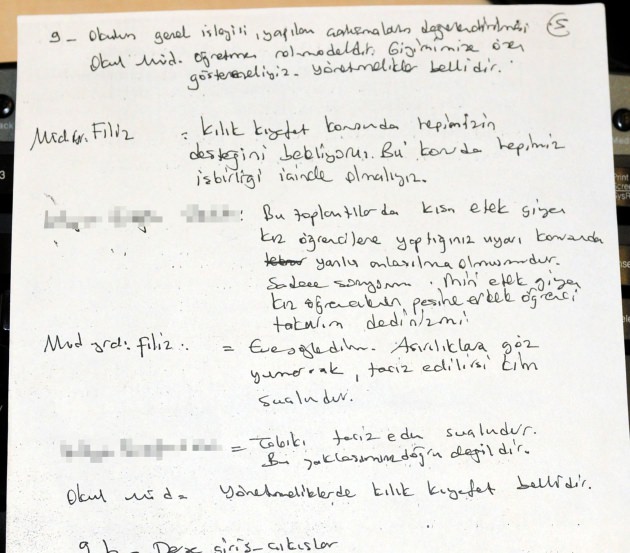 9 - Okulun genel işleyişi, yapılan çalışmaların değerlendirilmesi 5
Okul Müd. Öğretmen rolmodeldir. Giyimimize özen
göstermeliyiz. Yönetmelikler bellidir.
Müd yr. Filiz = Kılık kıyafet konusunda hepimizin
desteğini bekliyoruz. Bu konuda hepimiz
işbirliği içinde olmalıyız.
: Bu toplantılarda kısa etek giyen
kız öğrencilere yaptığınız uyarı konusunda
yanlış anlaşılma olmasındır.
Sadece soruyorum. Mini etek giyen
kız öğrencilerin peşine erkek öğrenci
takarım dediniz mi
Müd yrd. Filiz . = Eve söyledim. Aşırılıklara göz
yumarak, taciz edilirsi kim
suçludur.
= Tabiki taciz eden suçludur.
Bu yaklaşımınız doğru değildir.
Okul Müd = Yönetmeliklerde kılık kıyafet bellidir.
9.b - Ders giriş-çıkışlar